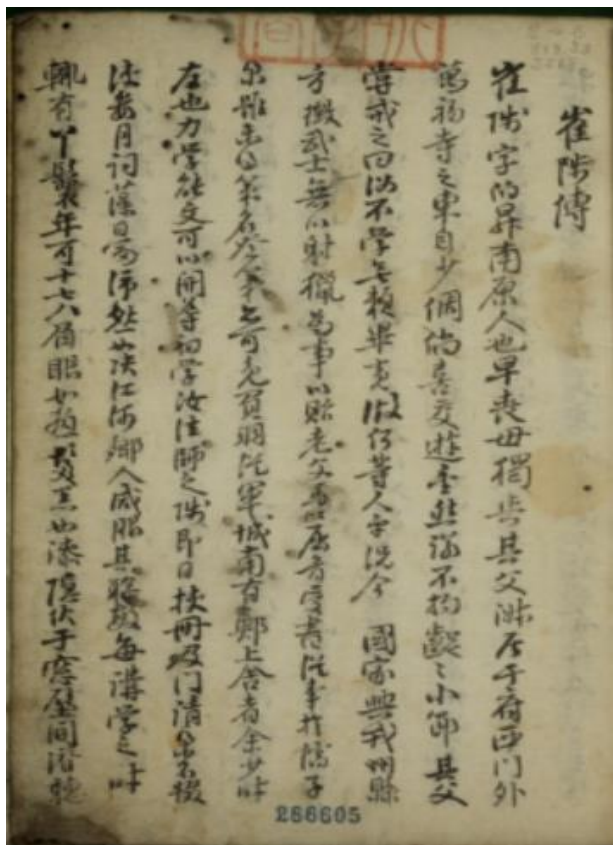 崔陟傳
崔陟字伯昇南原人也早喪母獨與其父淑居于府西門外
萬福寺之東自少倜儻喜交遊重然諾不拘齪々小節其父
嘗戒之曰汝不學無賴畢竟做何等人乎況今 國家興戎州縣
方徵武士無以射獵爲事以貽老父憂屈首受書從事於擧子
業雖未得策名登第亦可免負羽從軍城南有鄭上舍者余少時
友也力學能文可以開導初學汝往師之陟即日挾冊及門請業不輟
浹數月詞藻日富沛然如決江河鄉人咸服其聰敏每講學之時
輒有丫鬟年可十七八眉眼如畫髮黑如漆隱伏于窓壁間潛聽
266605